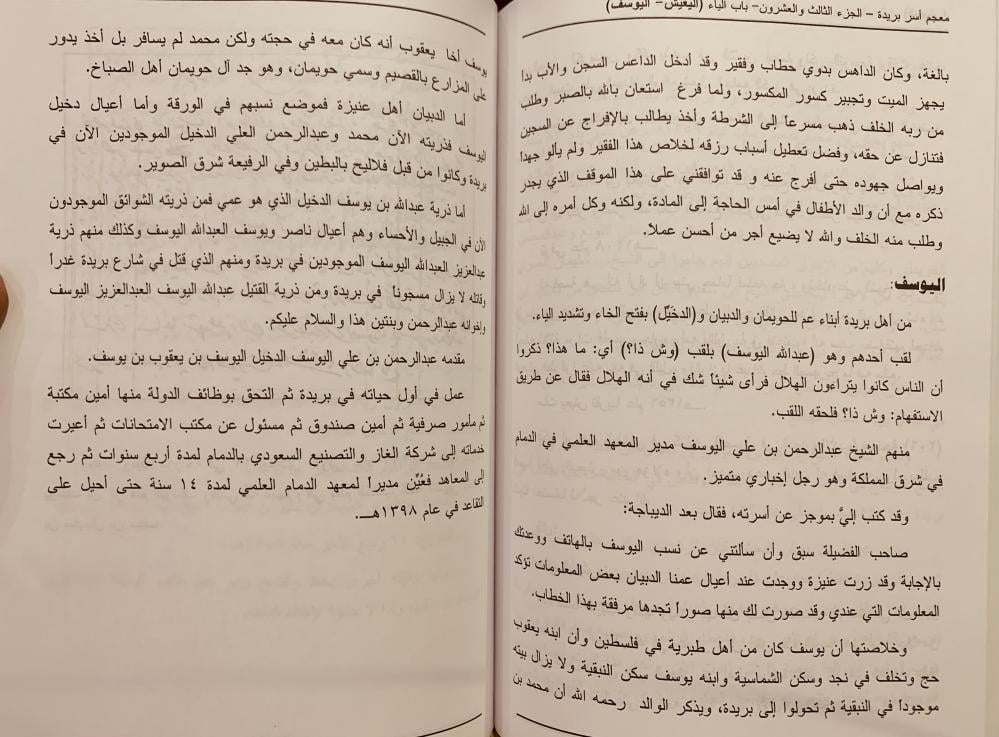 معجم أسر بريدة – الجزء الثالث والعشرون– باب الياء (اليعيش– اليوسف)
بالغة، وكان الداهس بدوي حطاب وفقير وقد أدخل الداعس السجن والأب بدا
يجهز الميت وتجبير كسور المكسور، ولما فرغ استعان بالله بالصبر وطلب
من ربه الخلف ذهب مسرعاً إلى الشرطة وأخذ يطالب بالإفراج عن السجين
فتنازل عن حقه، وفضل تعطيل أسباب رزقه لخلاص هذا الفقير ولم يألو جهداً
ويواصل جهوده حتى أفرج عنه و قد توافقني على هذا الموقف الذي يجدر
ذكره مع أن والد الأطفال في أمس الحاجة إلى المادة، ولكنه وكل أمره إلى الله
وطلب منه الخلف والله لا يضيع أجر من أحسن عملاً.
اليوسف:
من أهل بريدة أبناء عم للحويمان والدبيان و(الدخَيِّل) بفتح الخاء وتشديد الياء.
لقب أحدهم وهو (عبدالله اليوسف) بلقب (وش ذا؟) أي: ما هذا؟ ذكروا
أن الناس كانوا يتراءون الهلال فرأى شيئاً شك في أنه الهلال فقال عن طريق
الاستفهام: وش ذا؟ فلحقه اللقب.
منهم الشيخ عبدالرحمن بن علي اليوسف مدير المعهد العلمي في الدمام
في شرق المملكة وهو رجل إخباري متميز.
وقد كتب إليَّ بموجز عن أسرته، فقال بعد الديباجة:
صاحب الفضيلة سبق وأن سألتني عن نسب اليوسف بالهاتف ووعدتك
بالإجابة وقد زرت عنيزة ووجدت عند أعيال عمنا الدبيان بعض المعلومات تؤكد
المعلومات التي عندي وقد صورت لك منها صوراً تجدها مرفقة بهذا الخطاب.
وخلاصتها أن يوسف كان من أهل طبرية في فلسطين وأن ابنه يعقوب
حج وتخلف في نجد وسكن الشماسية وابنه يوسف سكن النبقية ولا يزال بيته
موجوداً في النبقية ثم تحولوا إلى بريدة، ويذكر الوالد رحمه الله أن محمد بن
يوسف أخا يعقوب أنه كان معه في حجته ولكن محمد لم يسافر بل أخذ يدور
على المزارع بالقصيم وسمي حويمان، وهو جد آل حويمان أهل الصباخ.
أما الدبيان أهل عنيزة فموضع نسبهم في الورقة وأما أعيال دخيل
اليوسف فذريته الآن محمد وعبدالرحمن العلي الدخيل الموجودين الآن في
بريدة وكانوا من قبل فلاليح بالبطين وفي الرفيعة شرق الصوير.
أما ذرية عبدالله بن يوسف الدخيل الذي هو عمي فمن ذريته الشوائق الموجودون
الآن في الجبيل والأحساء وهم أعيال ناصر ويوسف العبدالله اليوسف وكذلك منهم ذرية
عبدالعزيز العبدالله اليوسف الموجودين في بريدة ومنهم الذي قتل في شارع بريدة غدراً
وقاتله لا يزال مسجوناً في بريدة ومن ذرية القتيل عبدالله اليوسف العبدالعزيز اليوسف
وإخوانه عبدالرحمن وبنتين هذا والسلام عليكم.
مقدمه عبدالرحمن بن علي اليوسف الدخيل اليوسف بن يعقوب بن يوسف.
عمل في أول حياته في بريدة ثم التحق بوظائف الدولة منها أمين مكتبة
ثم مأمور صرفية ثم أمين صندوق ثم مسئول عن مكتب الامتحانات ثم أعيرت
خدماته إلى شركة الغاز والتصنيع السعودي بالدمام لمدة أربع سنوات ثم رجع
إلى المعاهد فعُيِّن مديراً لمعهد الدمام العلمي لمدة ١٤ سنة حتى أحيل على
التقاعد في عام ١٣٩٨هـ.